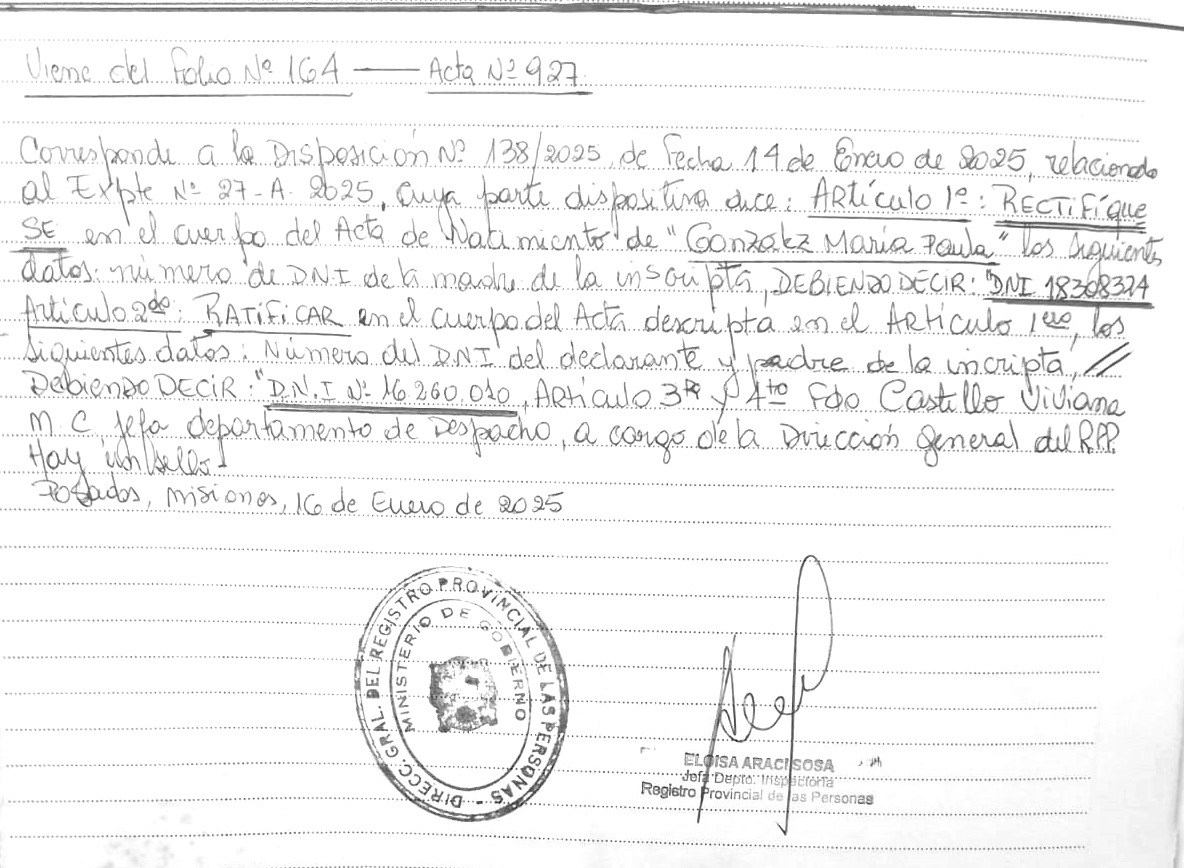 Viene del folio Nº 164 — Acta Nº 927
Corresponde a la Disposición Nº 138/2025, de fecha 14 de Enero de 2025, relacionado
al Expte Nº 27-A-2025, cuya parte dispositiva dice: Artículo 1º: RECTIFÍQUE
SE en el cuerpo del Acta de Nacimiento de "González María Paula" los siguientes
datos: número de DNI de la madre de la inscripta, DEBIENDO DECIR: "DNI 18308324
Artículo 2do: RATIFICAR en el cuerpo del Acta descripta en el Artículo 1ero, los
siguientes datos: Número del DNI del declarante y padre de la incripta, //
Debiendo DECIR: "D.N.I Nº 16.260.010, Artículo 3ro y 4to Fdo Castillo Viviana
M. C Jefa departamento de Despacho, a cargo de la Dirección general del R.P.P.
Hay un sello-
Posadas, Misiones, 16 de Enero de 2025
DIRECC. GRAL. DEL REGISTRO PROVINCIAL DE LAS PERSONAS -
MINISTERIO DE GOBIERNO
ELOISA ARACI SOSA
Jefa Depto. Inspectoría
Registro Provincial de las Personas